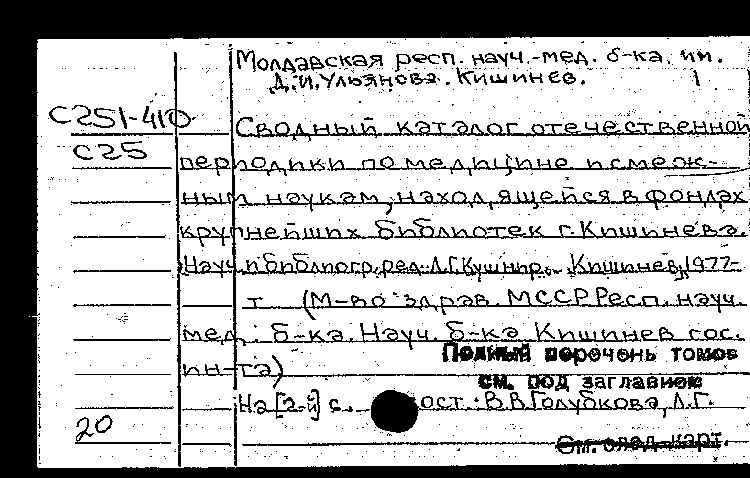 Молдавская респ. науч.-мед. б-ка им.
Д.И.Ульянова. Кишинев. 1
С251-410
Сводный каталог отечественной
С25
периодики по медицине и смеж-
ным наукам, находящейся в фондах
крупнейших библиотек г.Кишинева.
Науч. и библиогр. ред. Л.Г.Кушнир. Кишинев, 1977-
т (М-во здрав. МССР. Респ. науч.
мед. б-ка. Науч. б-ка Кишинев гос.
ин-та)
Полный перечень томов
см. под заглавием
На [2-й] с. ост.: В.В.Голубкова, Л.Г.
20
См. след. карт.